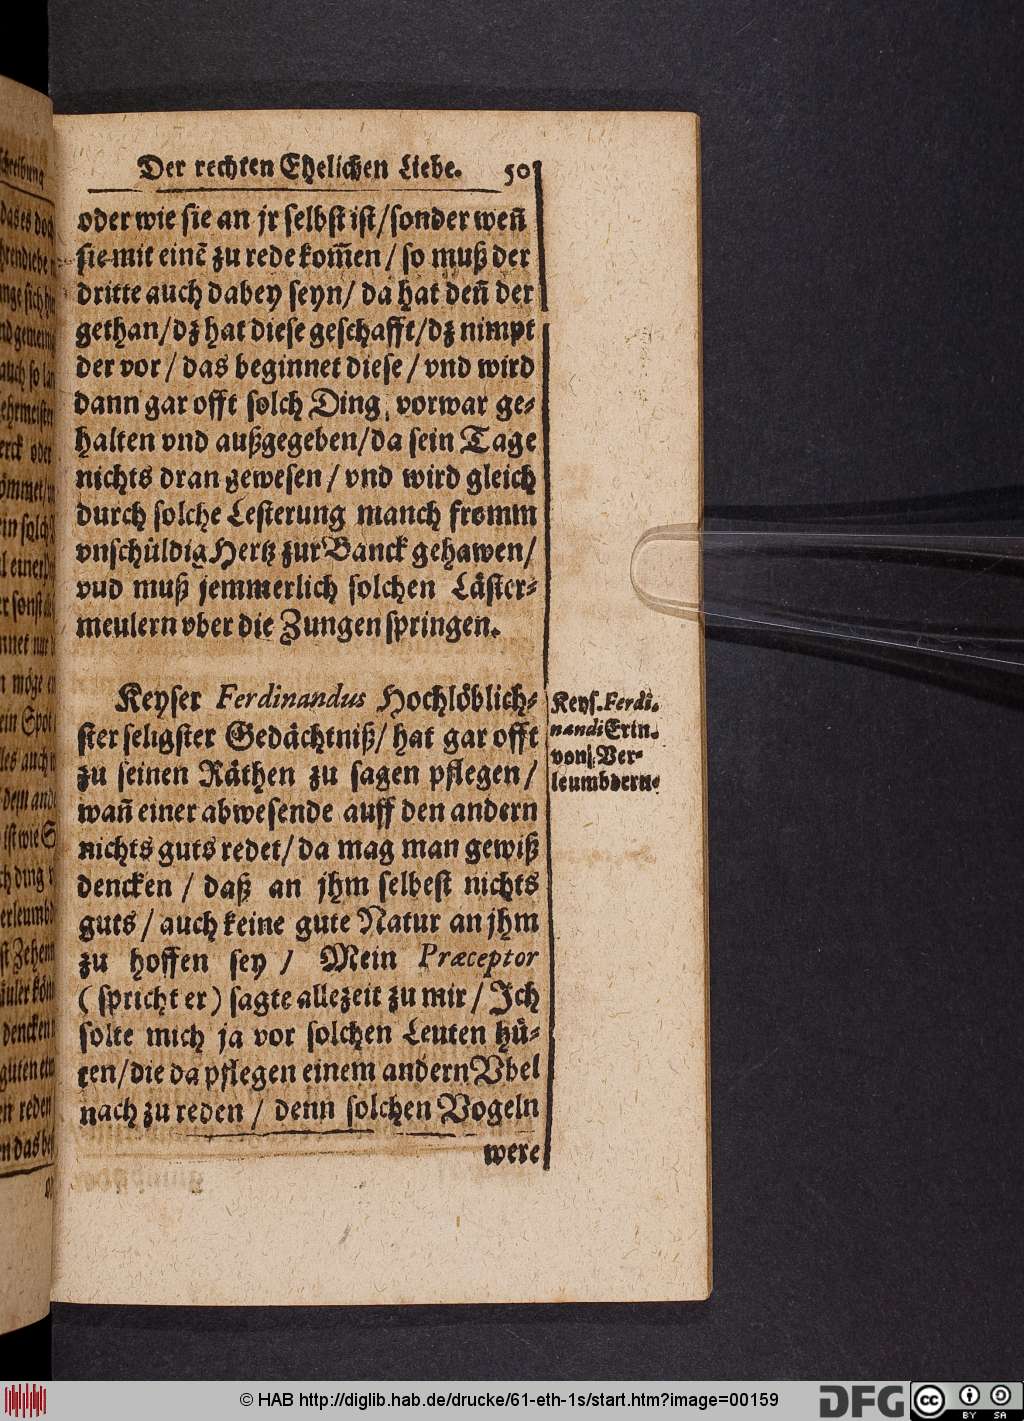 Der rechten Ehelichen Liebe. 50
oder wie sie an jr selbst ist/sonder weñ
sie mit einẽ zu rede kom̃en / so muß der
dritte auch dabey seyn/ da hat deñ der
gethan/dz hat diese geschafft/dz nimpt
der vor / das beginnet diese / vnd wird
dann gar offt solch Ding, vorwar ge-
halten vnd außgegeben/da sein Tage
nichts dran gewesen / vnd wird gleich
durch solche Lesterung manch fromm
vnschüldig Hertz zur Banck gehawen/
vud muß jemmerlich solchen Läster-
meulern vber die Zungen springen.
Keyser Ferdinandus Hochlöblich-
ster seligster Gedächtniß/ hat gar offt
zu seinen Räthen zu sagen pflegen/
wañ einer abwesende auff den andern
nichts guts redet/ da mag man gewiß
dencken / daß an jhm selbest nichts
guts / auch keine gute Natur an jhm
zu hoffen sey / Mein Præceptor
( spricht er ) sagte allezeit zu mir / Ich
solte mich ja vor solchen Leuten hü-
ten/die da pflegen einem andern Vbel
nach zu reden / denn solchen Vogeln
were
Keys. Ferdi.
nandi Erin.
von Ver-
leumbdern.
© HAB http://diglib.hab.de/drucke/61-eth-1s/start.htm?image=00159
DFG
cc
BY SA